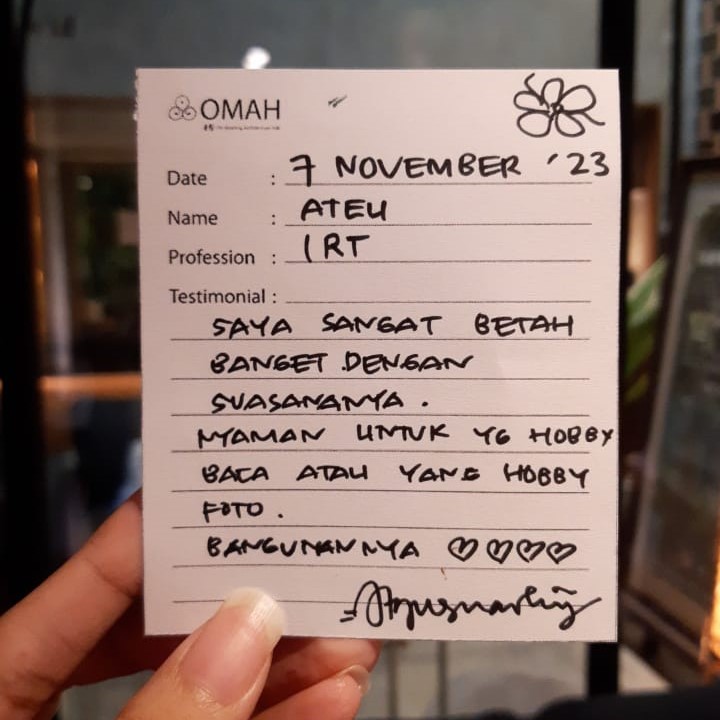 OMAH
Date : 7 NOVEMBER '23
Name : ATEU
Profession : IRT
Testimonial :
SAYA SANGAT BETAH
BANGET DENGAN
SUASANANYA.
NYAMAN UNTUK YG HOBBY
BACA ATAU YANG HOBBY
FOTO.
BANGUNANNYA ♡♡♡♡